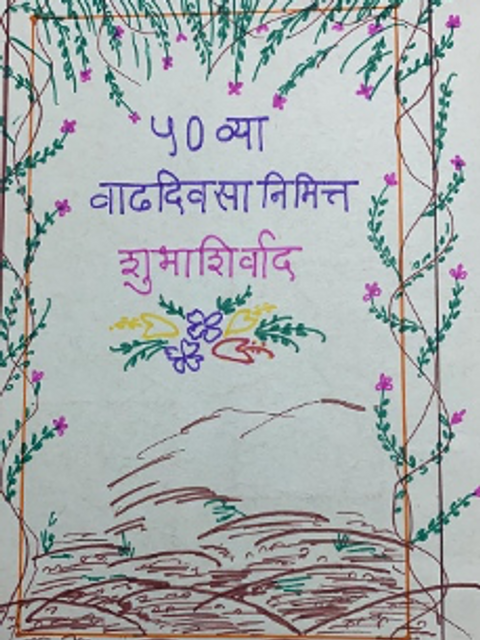 ५० व्या
वाढदिवसा निमित्त
शुभाशिर्वाद